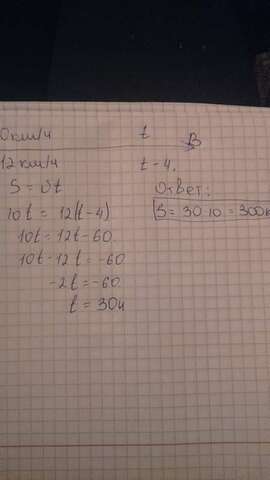 0 км/ч t
B
12 км/ч t - 4.
S = vt Ответ:
10t = 12(t-4) S = 30·10 = 300к
10t = 12t - 60.
10t - 12t = -60
-2t = -60
t = 30ч